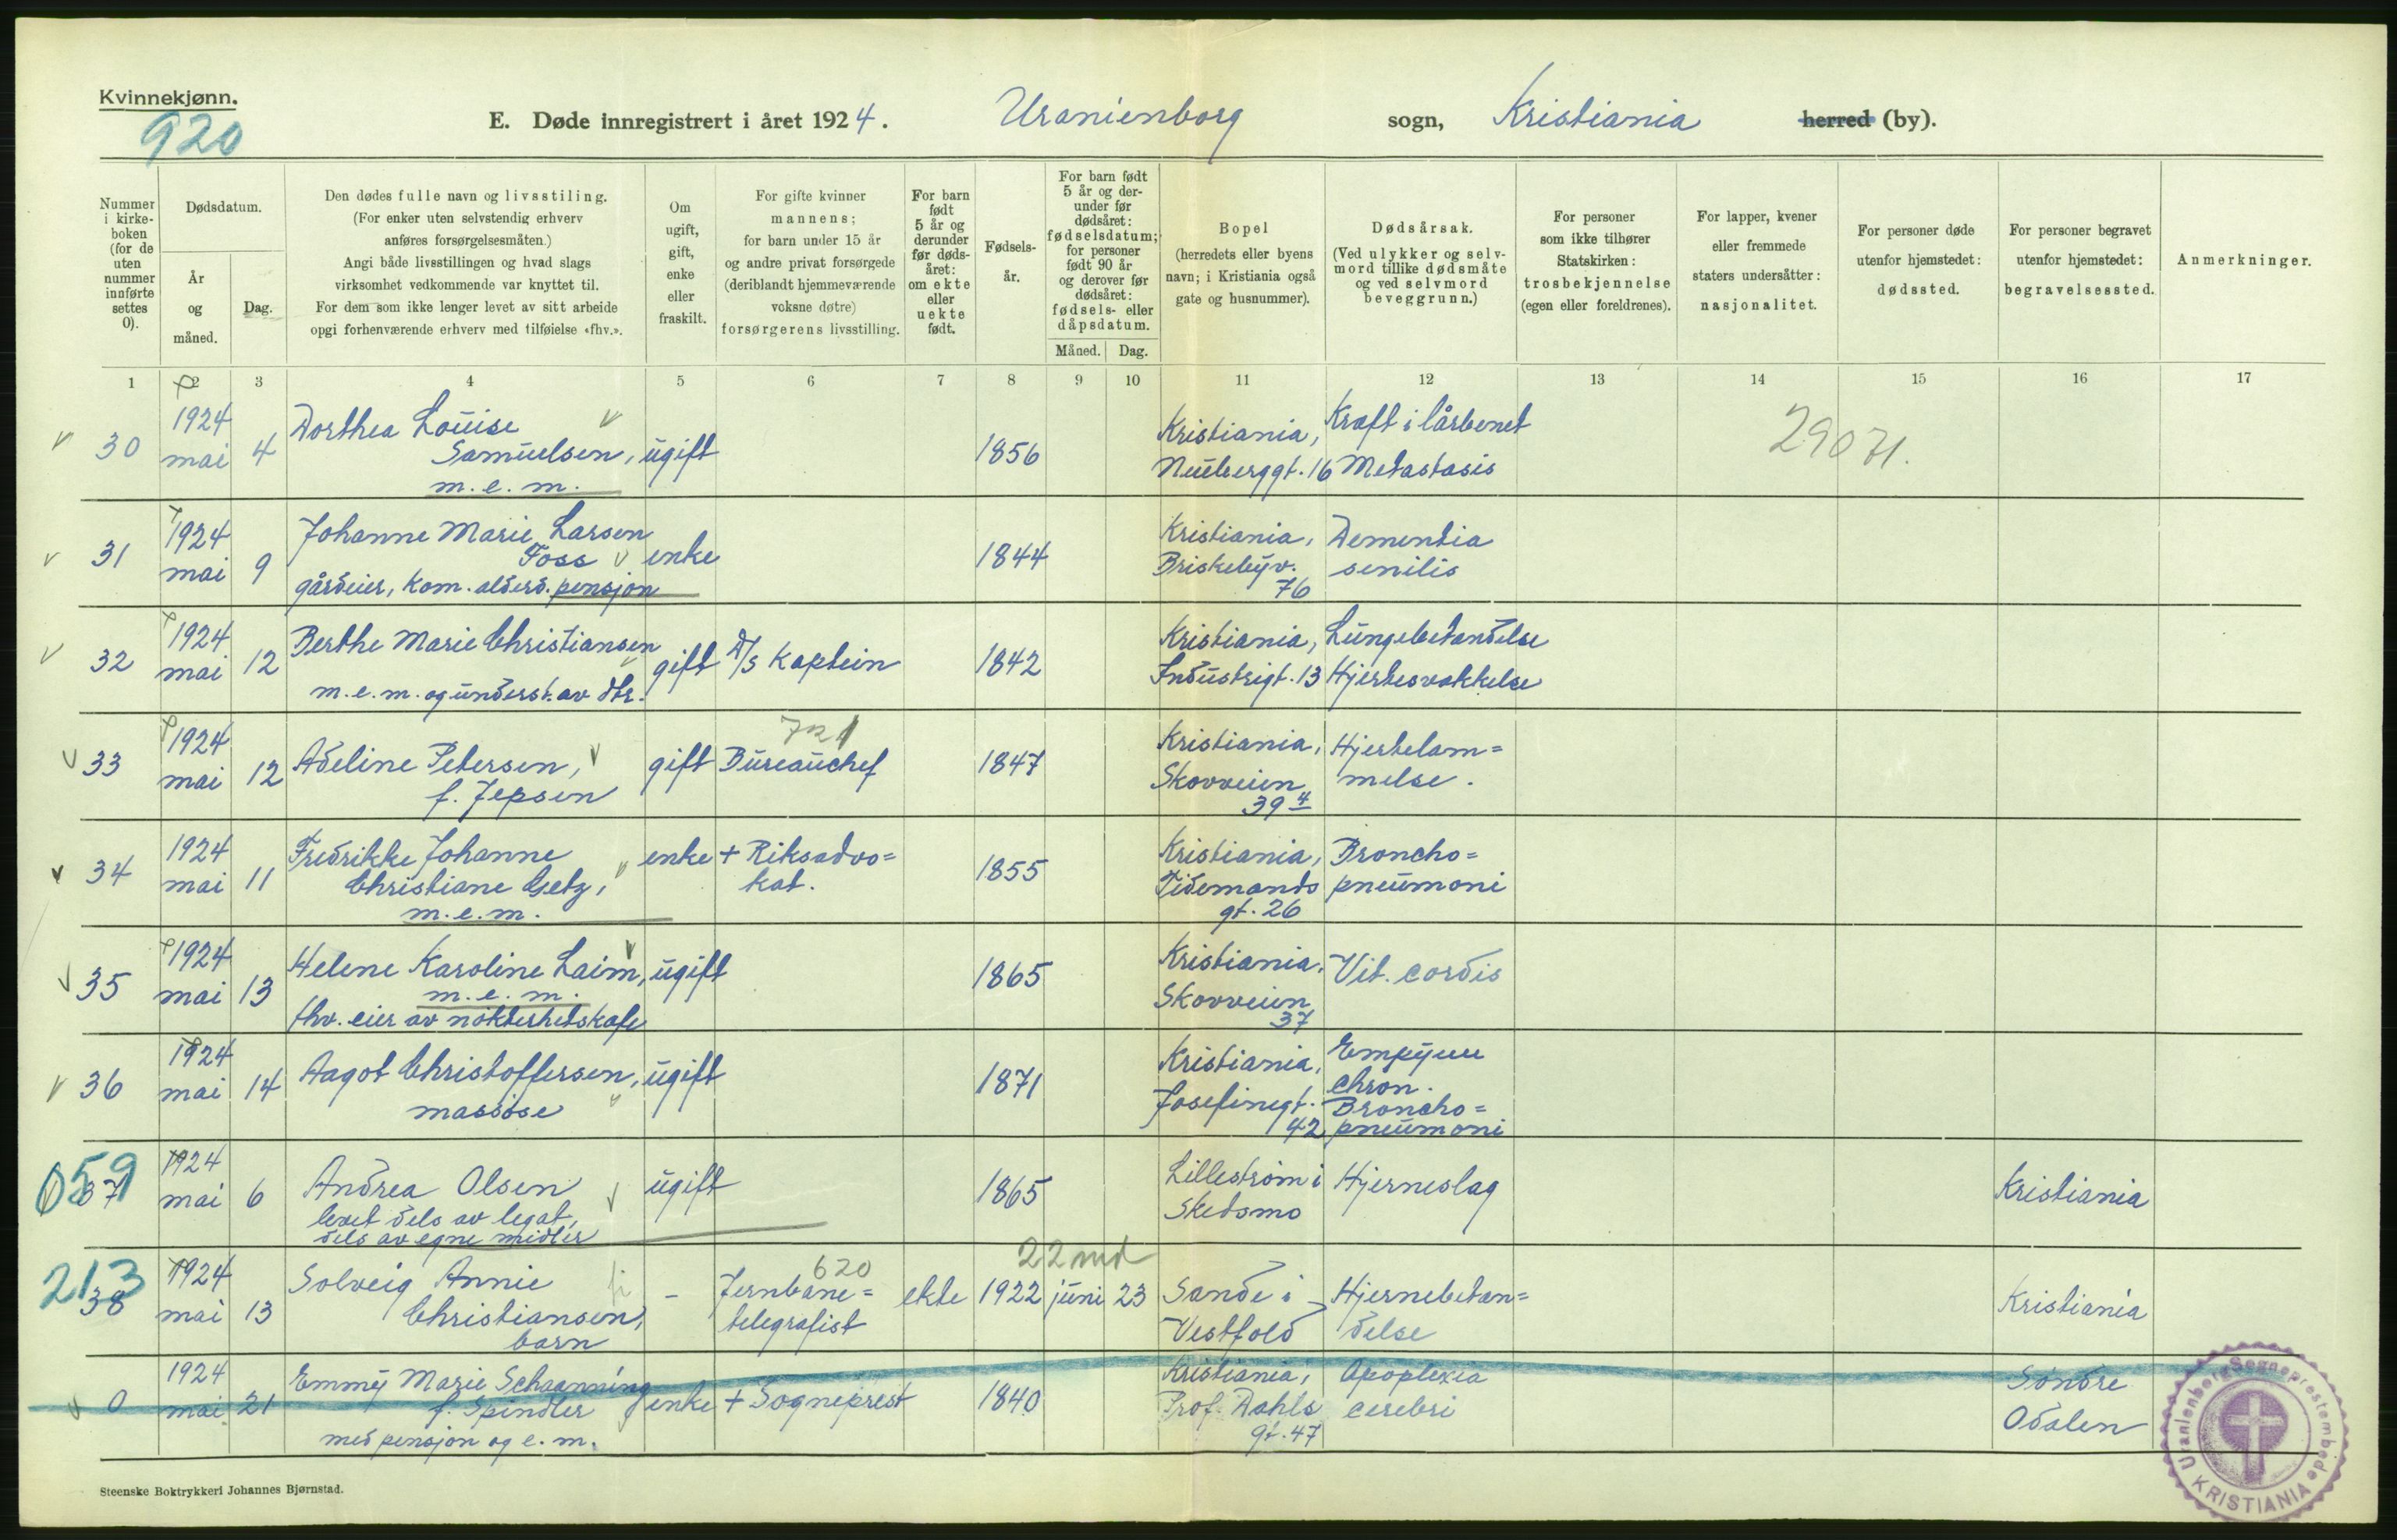 Kvinnekjønn.
920
E. Døde innregistrert i året 1924. Uranienborg sogn, Kristiania herred (by).
Nummer i kirke-boken (for de uten nummer innførte settes 0).
Dødsdatum.
År og måned.
Dag.
Den dødes fulle navn og livsstiling.
(For enker uten selvstendig erhverv
anføres forsørgelsesmåten.)
Angi både livsstillingen og hvad slags
virksomhet vedkommende var knyttet til.
For dem som ikke lenger levet av sitt arbeide
opgi forhenværende erhverv med tilføielse «fhv.».
Om
ugift,
gift,
enke
eller
fraskilt.
For gifte kvinner
mannens;
for barn under 15 år
og andre privat forsørgede
(deriblandt hjemmeværende
voksne døtre)
forsørgerens livsstilling.
For barn
født
5 år og
derunder
før døds-
året:
om ekte
eller
uekte
født.
Fødsels-
år.
For barn født
5 år og der-
under før
dødsåret:
fødselsdatum;
for personer
født 90 år
og derover før
dødsåret:
fødsels- eller
dåpsdatum.
Måned. Dag.
Bopel
(herredets eller byens
navn; i Kristiania også
gate og husnummer).
Dødsårsak.
(Ved ulykker og selv-
mord tillike dødsmåte
og ved selvmord
beveggrunn.)
For personer
som ikke tilhører
Statskirken:
trosbekjennelse
(egen eller foreldrenes).
For lapper, kvener
eller fremmede
staters undersåtter:
nasjonalitet.
For personer døde
utenfor hjemstedet:
dødssted.
For personer begravet
utenfor hjemstedet:
begravelsessted.
Anmerkninger.
1 2 3 4 5 6 7 8 9 10 11 12 13 14 15 16 17
30 1924 mai 4
Dorthea Louise
Samuelsen,
m.e.m.
ugift
1856
Kristiania,
Neuberggt. 16
Kræft i lårbenet
Metastasis
29071.
31 1924 mai 9
Johanne Marie Larsen
Foss
gårdeier, kom. alderd. pensjon
enke
1844
Kristiania,
Briskebyv.
76
Dementia
senilis
32 1924 mai 12
Berthe Marie Christiansen
m.e.m. og underst. av dtr.
gift
D/S Kaptein
1842
Kristiania,
Industrigt. 13
Lungebetændelse
Hjertesvakkelse
33 1924 mai 12
Adeline Petersen,
f. Jepsen
gift
721
Bureauchef
1847
Kristiania,
Skovveien
39 4
Hjertelam=
melse.
34 1924 mai 11
Fredrikke Johanne
Christiane Getz,
m.e.m.
enke
+ Riksadvo=
kat.
1855
Kristiania,
Tidemands
gt. 26
Broncho=
pneumoni
35 1924 mai 13
Helene Karoline Laim,
m.e.m.
fhv. eier av nøkterhetskafe
ugift
1865
Kristiania,
Skovveien
37
Vit. cordis
36 1924 mai 14
Aagot Christoffersen,
massøse
ugift
1871
Kristiania,
Josefinegt.
42
Empyem
chron.
Broncho=
pneumoni
059
37 1924 mai 6
Andrea Olsen
levet dels av legat,
dels av egne midler
ugift
1865
Lillestrøm i
Skedsmo
Hjerneslag
Kristiania
213
38 1924 mai 13
Solveig Annie
Christiansen,
barn
-
620
Jernbane=
telegrafist
ekte
22 md
1922 juni 23
Sande i
Vestfold
Hjernebetæn=
delse
Kristiania
0 1924 mai 21
Emmy Marie Schaanning
f. Spindler
med pensjon og e.m.
enke
+ Sogneprest
1840
Kristiania,
Prof. Dahls
gt. 47
Apoplexia
cerebri
Søndre
Odalen
Uranienborg Sogneprestembede
KRISTIANIA
Steenske Boktrykkeri Johannes Bjørnstad.